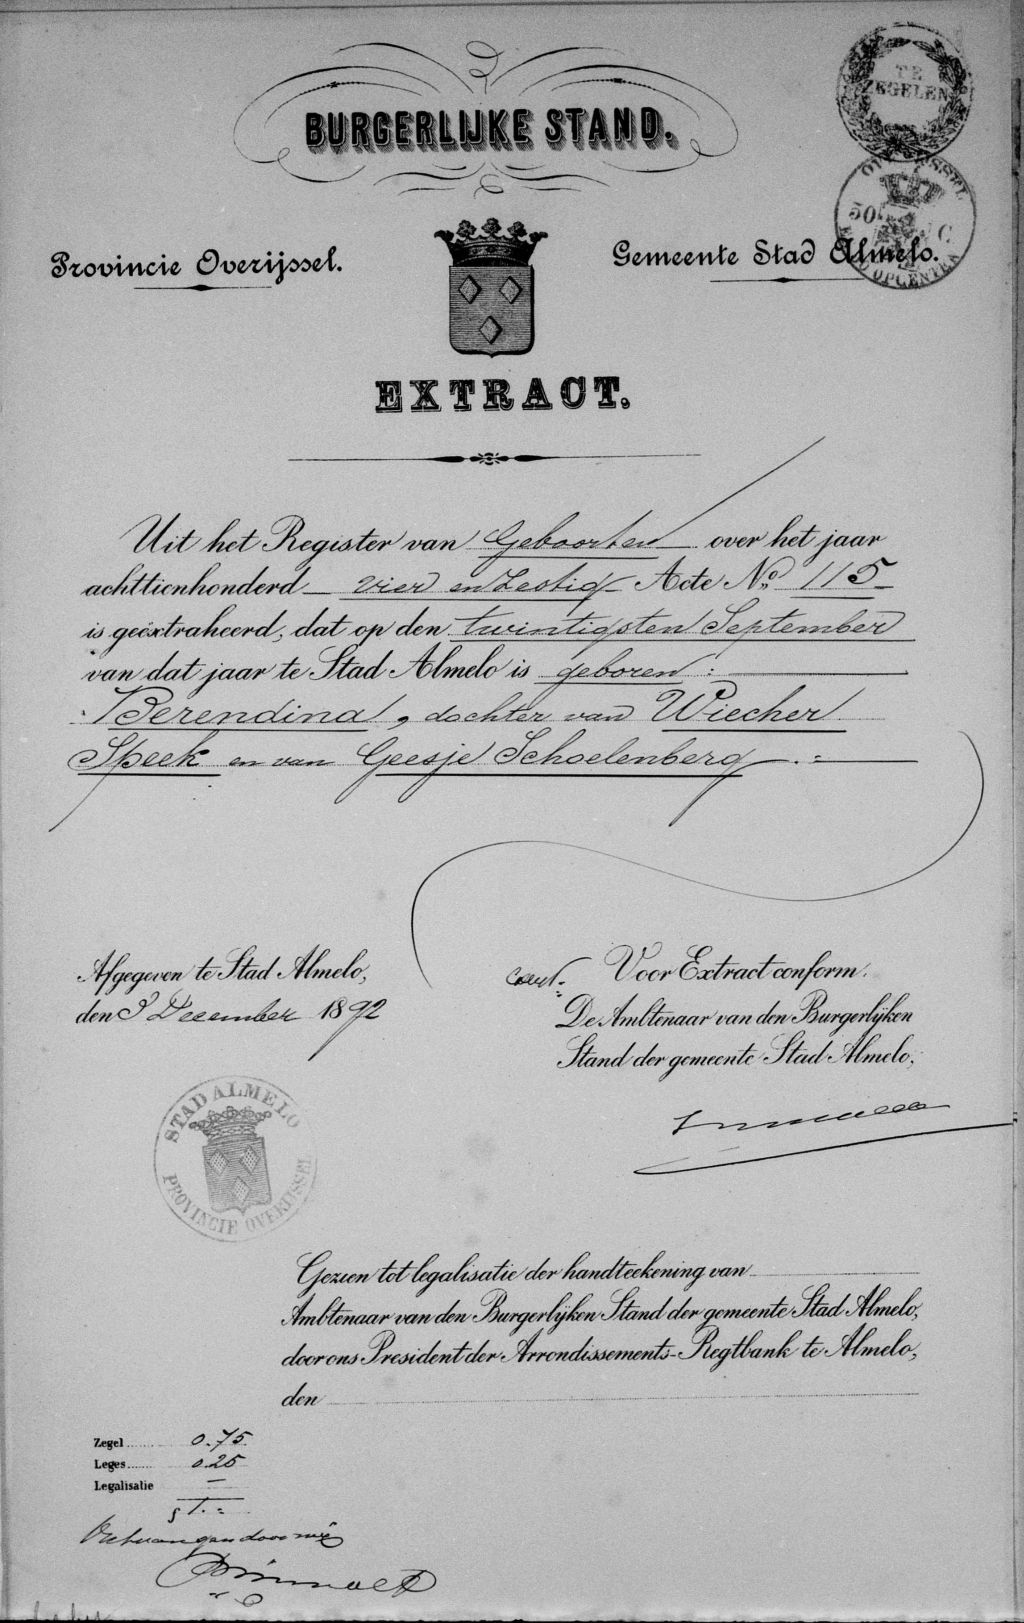 BURGERLIJKE STAND.
TE
ZEGELEN
OVERIJSSEL
50 C
OPCENTEN
Provincie Overijssel.
Gemeente Stad Almelo.
EXTRACT.
Uit het Register van Geboorten over het jaar
achttienhonderd vier en Zestig Acte No. 115
is geëxtraheerd, dat op den twintigsten September
van dat jaar te Stad Almelo is geboren:
Berendina, dochter van Wiecher
Speek en van Geesje Schoelenberg.
Afgegeven te Stad Almelo,
den 3 December 1892
Voor Extract conform.
De Ambtenaar van den Burgerlijken
Stand der gemeente Stad Almelo,
STAD ALMELO
PROVINCIE OVERIJSSEL
Gezien tot legalisatie der handteekening van
Ambtenaar van den Burgerlijken Stand der gemeente Stad Almelo,
door ons President der Arrondissements-Regtbank te Almelo,
den
Zegel 0.75
Leges 0.25
Legalisatie =
ƒ 1.=
Ontvangen door mij